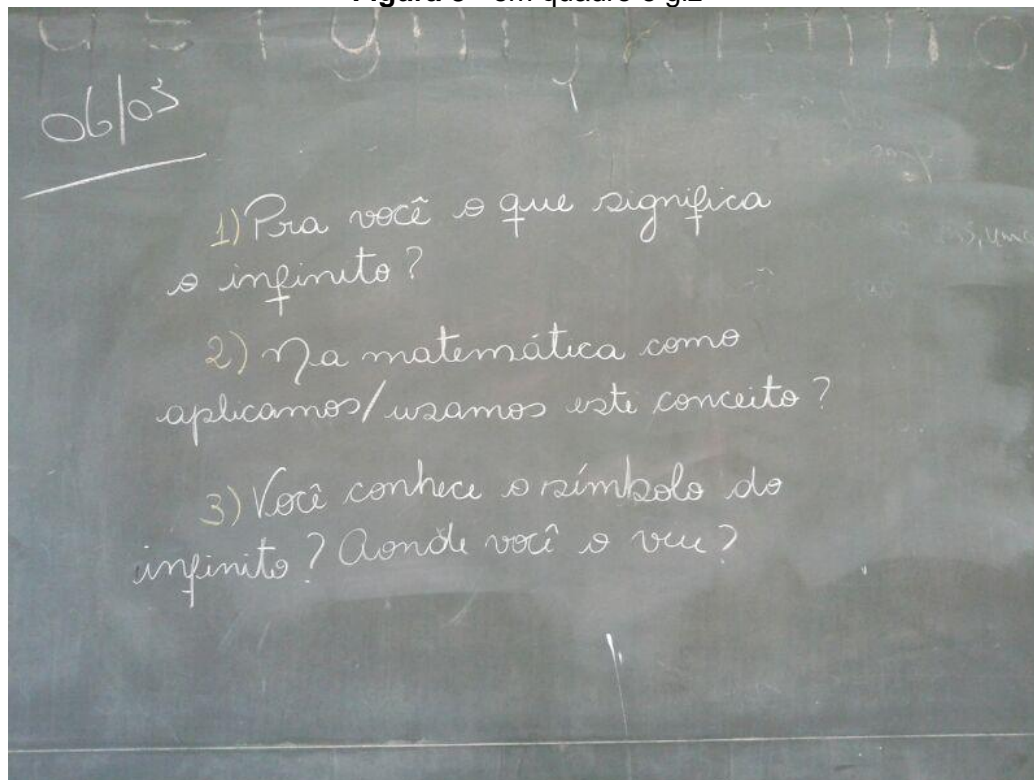 06/03
1) Pra você o que significa
o infinito?
2) Na matemática como
aplicamos/usamos este conceito?
3) Você conhece o símbolo do
infinito? Aonde você o viu?